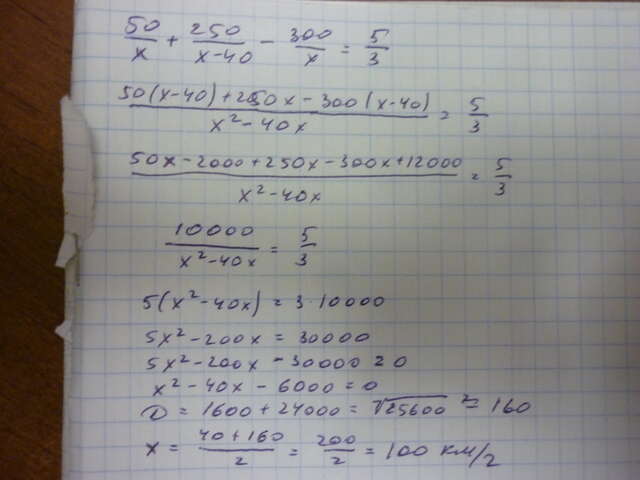 50/x + 250/x-40 - 300/x = 5/3
50(x-40)+250x-300(x-40)/x²-40x = 5/3
50x-2000+250x-300x+12000/x²-40x = 5/3
10000/x²-40x = 5/3
5(x²-40x) = 3·10000
5x²-200x = 30000
5x²-200x-30000=0
x²-40x-6000=0
D=1600+24000=√25600 = 160
x = 40+160/2 = 200/2 = 100 км/г